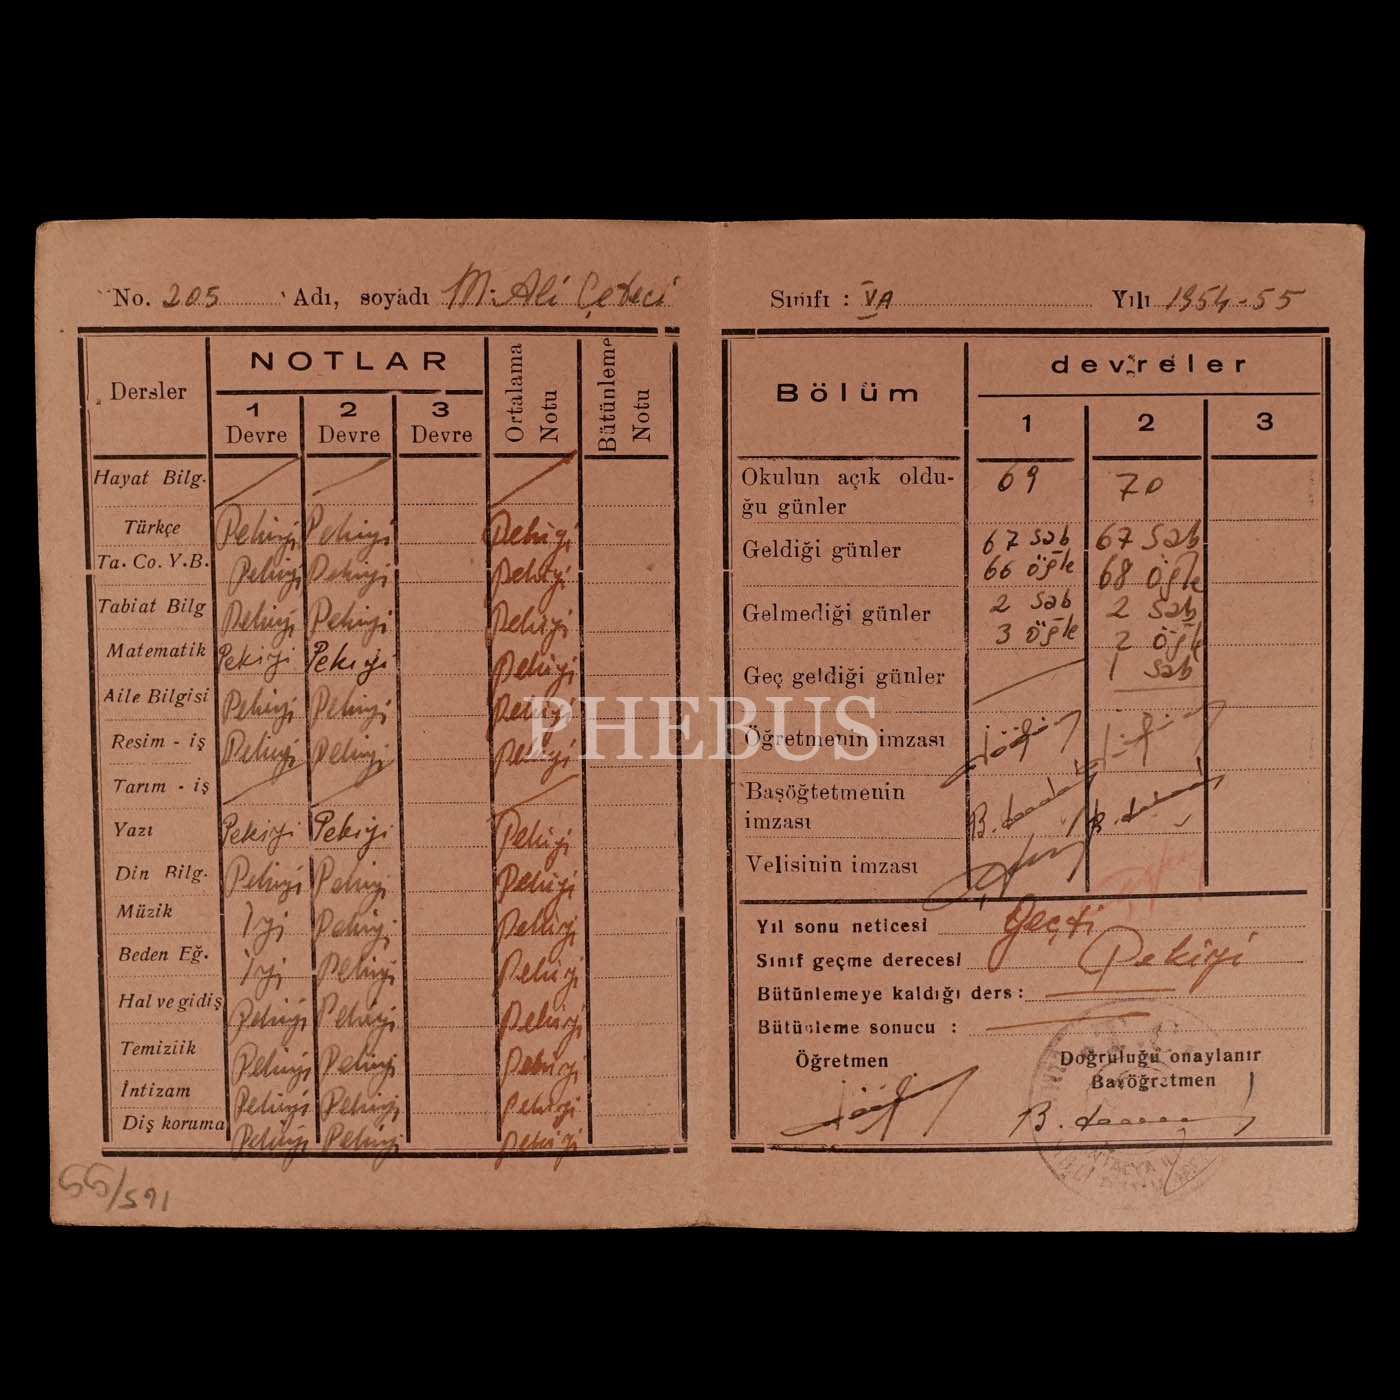 No. 205 Adı, soyadı M. Ali Çebeci
Dersler NOTLAR Ortalama Notu Bütünleme Notu
1 Devre 2 Devre 3 Devre
Hayat Bilg.
Türkçe Pekiyi Pekiyi Pekiyi
Ta. Co. Y.B. Pekiyi Pekiyi Pekiyi
Tabiat Bilg Pekiyi Pekiyi Pekiyi
Matematik Pekiyi Pekiyi Pekiyi
Aile Bilgisi Pekiyi Pekiyi Pekiyi
Resim - iş Pekiyi Pekiyi Pekiyi
Tarım - iş
Yazı Pekiyi Pekiyi Pekiyi
Din Bilg. Pekiyi Pekiyi Pekiyi
Müzik İyi Pekiyi Pekiyi
Beden Eğ. İyi Pekiyi Pekiyi
Hal ve gidiş Pekiyi Pekiyi Pekiyi
Temizlik Pekiyi Pekiyi Pekiyi
İntizam Pekiyi Pekiyi Pekiyi
Diş koruma Pekiyi Pekiyi Pekiyi
55/591
Sınıfı : VA Yılı 1954-55
Bölüm devreler
1 2 3
Okulun açık oldu- 69 70
ğu günler
Geldiği günler 67 Sab 67 Sab
66 öğle 68 öğle
Gelmediği günler 2 Sab 2 Sab
3 öğle 2 öğle
Geç geldiği günler 1 Sab
Öğretmenin imzası
Başöğtetmenin
imzası
Velisinin imzası
Yıl sonu neticesi Geçti
Sınıf geçme derecesi Pekiyi
Bütünlemeye kaldığı ders :
Bütünleme sonucu :
Öğretmen Doğruluğu onaylanır
Başöğretmen
PHEBUS